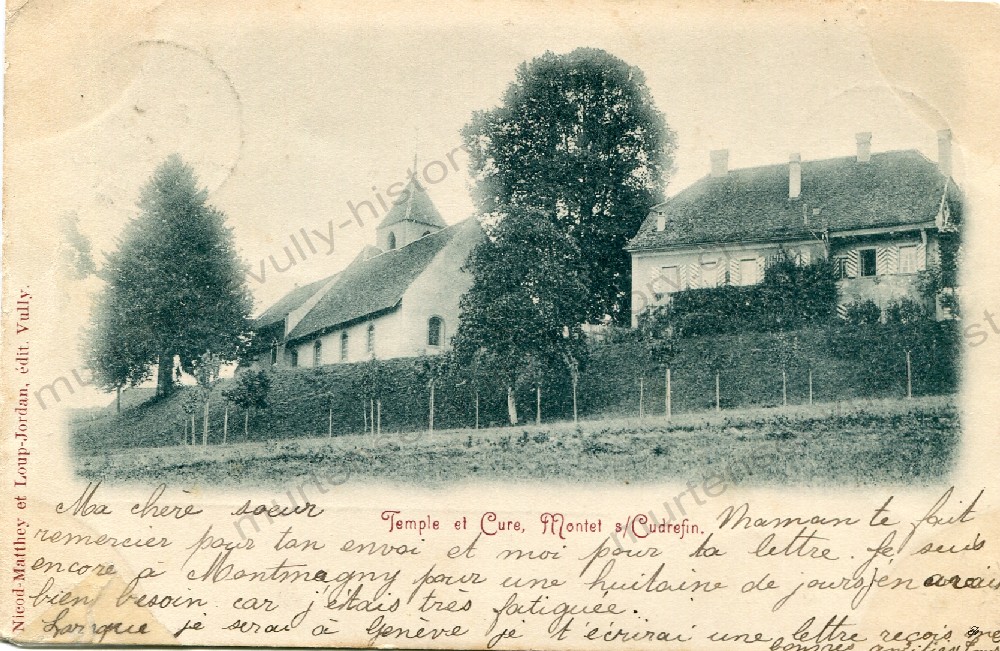 Nicod-Matthey et Loup-Jordan, édit. Vully.
murten-vully-history.ch
Temple et Cure, Montet s/Cudrefin.
Ma chère soeur Maman te fait
remercier pour ton envoi et moi pour ta lettre. Je suis
encore à Montmagny pour une huitaine de jours j'en avais
bien besoin car j'étais très fatiguée.
Lorsque je serai à Genève je t'écrirai une lettre reçois mes